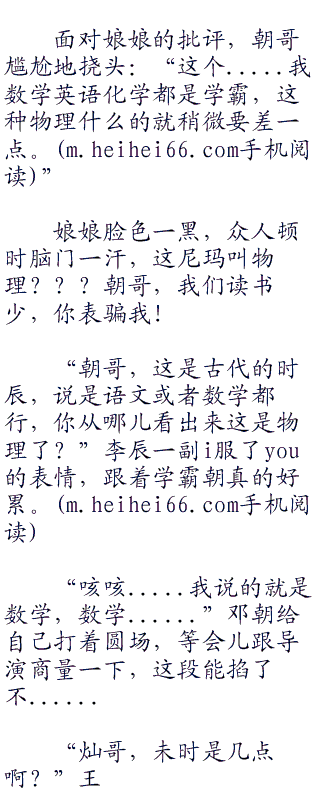 面对娘娘的批评，朝哥
尴尬地挠头：“这个.....我
数学英语化学都是学霸，这
种物理什么的就稍微要差一
点。(m.heihei66.com手机阅
读)”
娘娘脸色一黑，众人顿
时脑门一汗，这尼玛叫物
理？？？朝哥，我们读书
少，你表骗我！
“朝哥，这是古代的时
辰，说是语文或者数学都
行，你从哪儿看出来这是物
理了？”李辰一副i服了you
的表情，跟着学霸朝真的好
累。(m.heihei66.com手机阅
读)
“咳咳.....我说的就是
数学，数学......”邓朝给
自己打着圆场，等会儿跟导
演商量一下，这段能掐了
不......
“灿哥，未时是几点
啊？”王